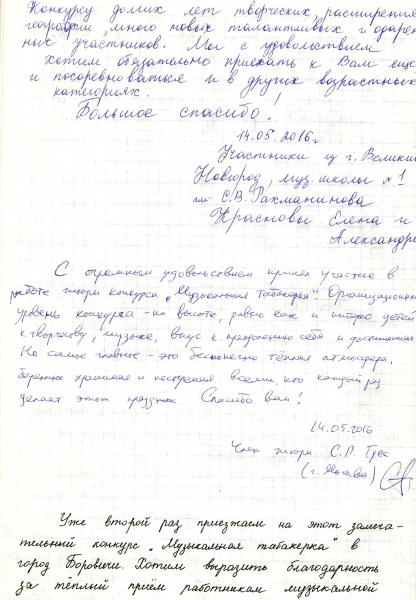 Конкурсу долгих лет творческих, расширение
географии, много новых талантливых и одарен
ных участников. Мы с удовольствием
хотим обязательно приехать к Вам еще
и посоревноваться и в других возрастных
категориях.
Большое спасибо!
14.05.2016г
Участники из г. Велики
Новгород, муз. школы №1
им. С.В. Рахманинова
Красновы Елена и
Александр
С огромным удовольствием принял участие в
работе жюри конкурса „Музыкальная табакерка". Организационный
уровень конкурса - на высоте, равно как и интерес детей
к творчеству, музыке, вкус к преодолению себя и достижениям.
Но самое главное - это бесконечно тёплая атмосфера,
бережно хранимая и всеми, кто каждый раз
делает этот праздник. Спасибо вам!
14.05.2016
Член жюри С.П.
(г. Москва)
Уже второй раз приезжаем на этот замеча-
тельный конкурс „Музыкальная табакерка" в
город Боровичи. Хотим выразить благодарность
за тёплый приём работникам музыкальной